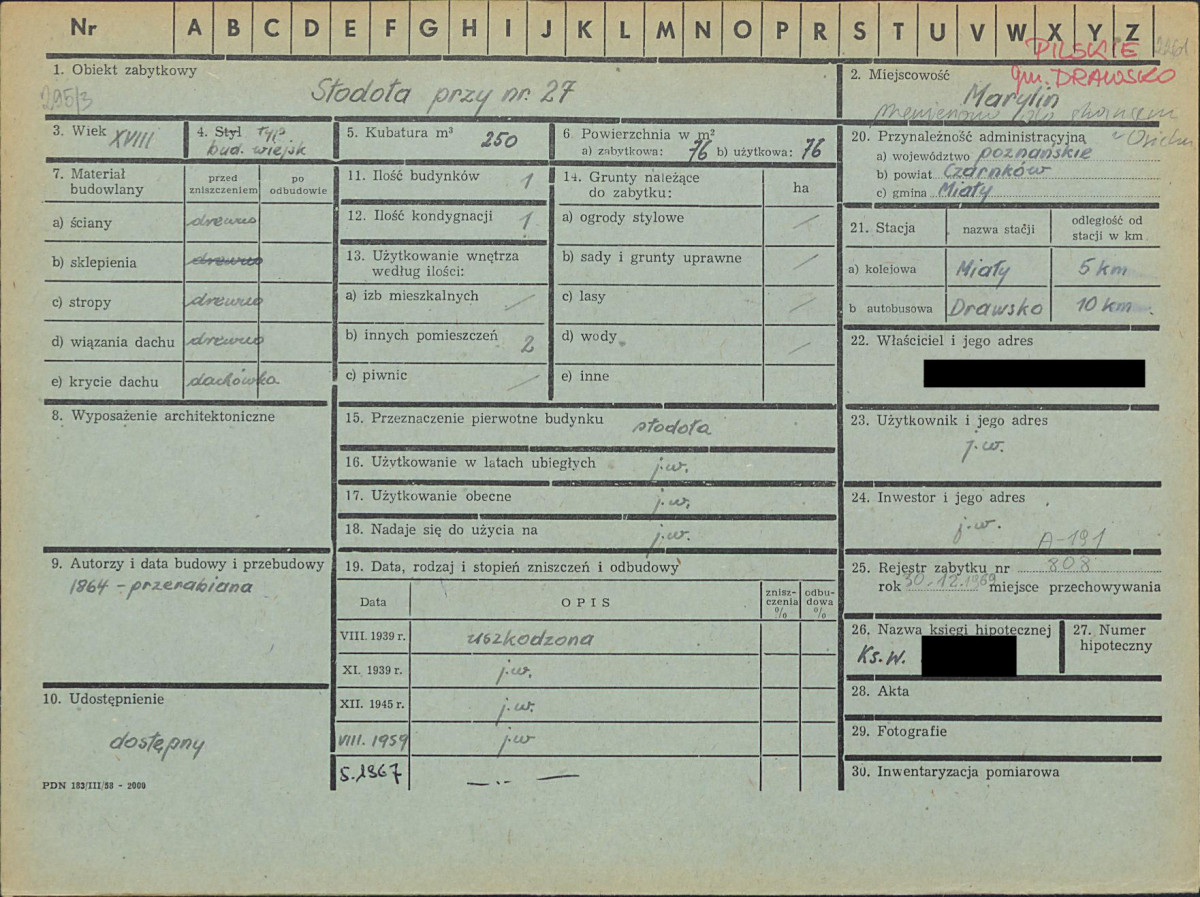 Nr A B C D E F G H I J K L M N O P R S T U V W X Y Z
PILSKIE
gm. DRAWSKO
295/3
1. Obiekt zabytkowy
Stodoła przy nr. 27
2. Miejscowość
Marylin
3. Wiek XVIII
4. Styl typ.
bud. wiejsk
5. Kubatura m³ 250
6. Powierzchnia w m²
a) zabytkowa: 76 b) użytkowa: 76
7. Materiał
budowlany
przed
zniszczeniem
po
odbudowie
a) ściany drewno
b) sklepienia drewno
c) stropy drewno
d) wiązania dachu drewno
e) krycie dachu dachówka
8. Wyposażenie architektoniczne
9. Autorzy i data budowy i przebudowy
1864 - przerabiana
10. Udostępnienie
dostępny
PDN 183/III/58 - 2000
11. Ilość budynków 1
12. Ilość kondygnacji 1
13. Użytkowanie wnętrza
według ilości:
a) izb mieszkalnych /
b) innych pomieszczeń 2
c) piwnic /
14. Grunty należące
do zabytku:
ha
a) ogrody stylowe /
b) sady i grunty uprawne /
c) lasy /
d) wody /
e) inne
15. Przeznaczenie pierwotne budynku stodoła
16. Użytkowanie w latach ubiegłych j.w.
17. Użytkowanie obecne j.w.
18. Nadaje się do użycia na j.w.
19. Data, rodzaj i stopień zniszczeń i odbudowy
Data
OPIS
znisz-
czenia
%
odbu-
dowa
%
VIII. 1939 r. uszkodzona
XI. 1939 r. j.w.
XII. 1945 r. j.w.
VIII. 1959 j.w
5.1967 —..—
20. Przynależność administracyjna
a) województwo poznańskie
b) powiat Czarnków
c) gmina Miały
21. Stacja
nazwa stacji
odległość od
stacji w km
a) kolejowa Miały 5 km
b autobusowa Drawsko 10 km.
22. Właściciel i jego adres
23. Użytkownik i jego adres
j.w.
24. Inwestor i jego adres
j.w.
A-191
25. Rejestr zabytku nr 808
rok 30.12.1969 miejsce przechowywania
26. Nazwa księgi hipotecznej
Ks.W.
27. Numer
hipoteczny
28. Akta
29. Fotografie
30. Inwentaryzacja pomiarowa